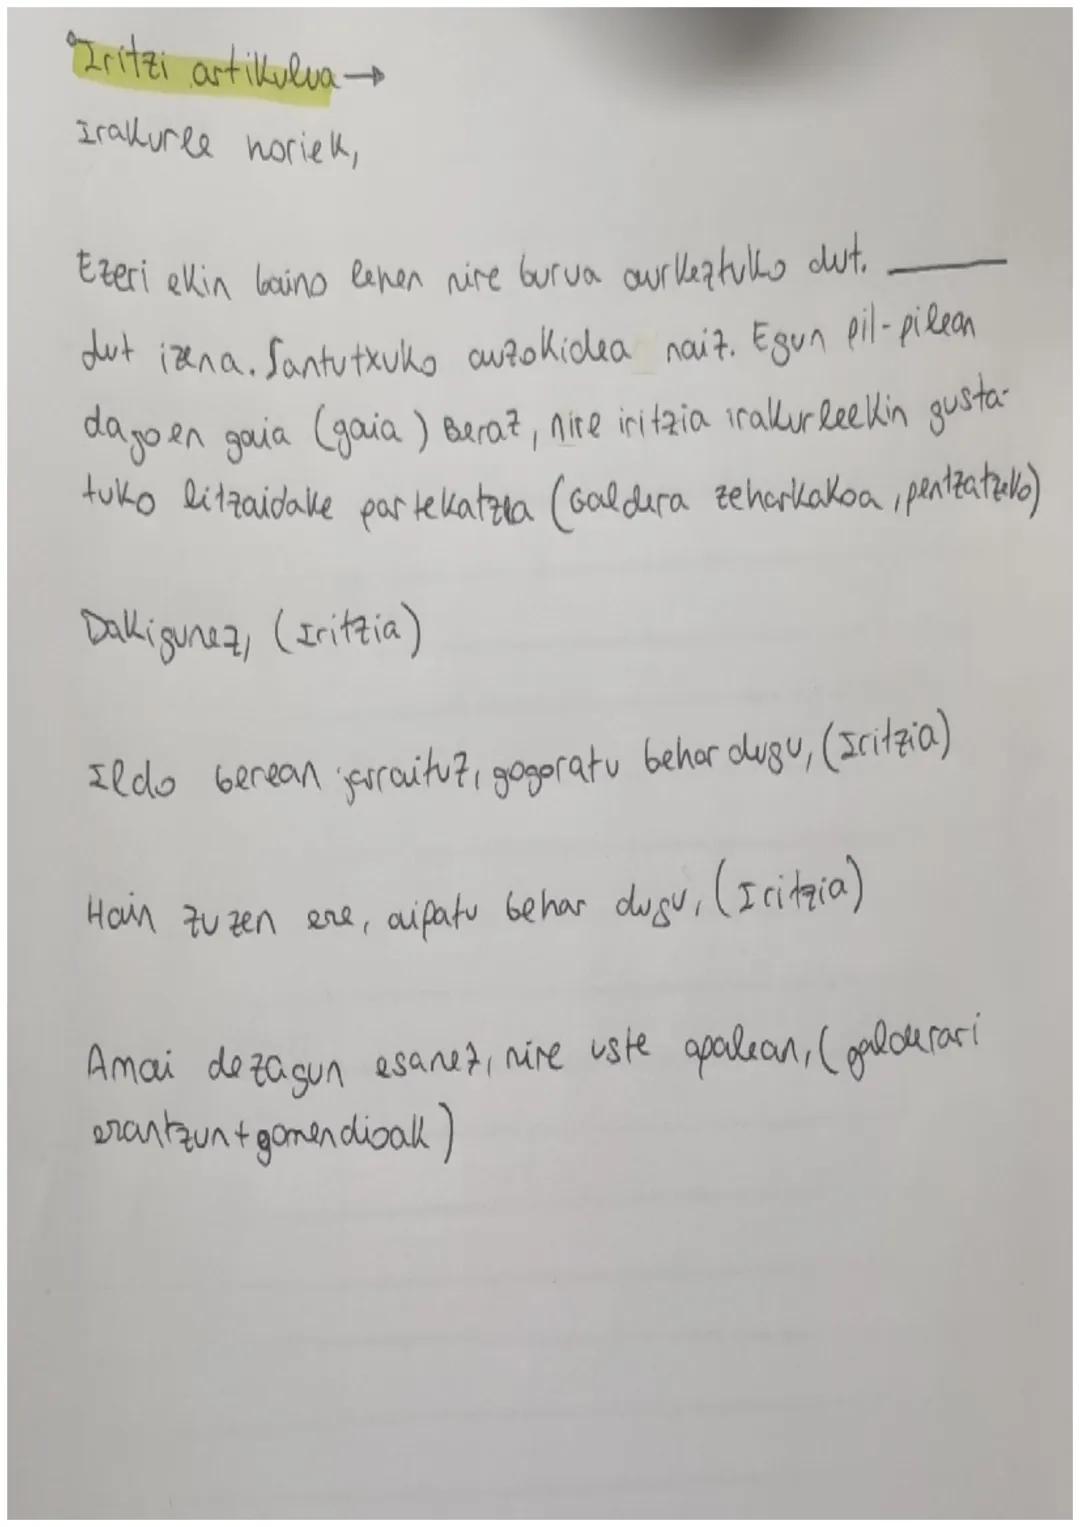 Iritzi artikulua →
Irakurle horiek,
Ezeri ekin baino lehen nire burua aurkeztuko dut. ______
dut izena. Santutxuko auzokidea naiz. Egun pil-pilean
dagoen gaia (gaia) Beraz, nire iritzia irakurleekin gusta-
tuko litzaidake partekatzea (Galdera zeharkakoa, pentzatzeko)
Dakigunez, (Iritzia)
Ildo berean jarraituz, gogoratu behar dugu, (Iritzia)
Hain zuzen ere, aipatu behar dugu, (Iritzia)
Amai dezagun esanez, nire uste apalean, (galderari
erantzun + gomendioak)